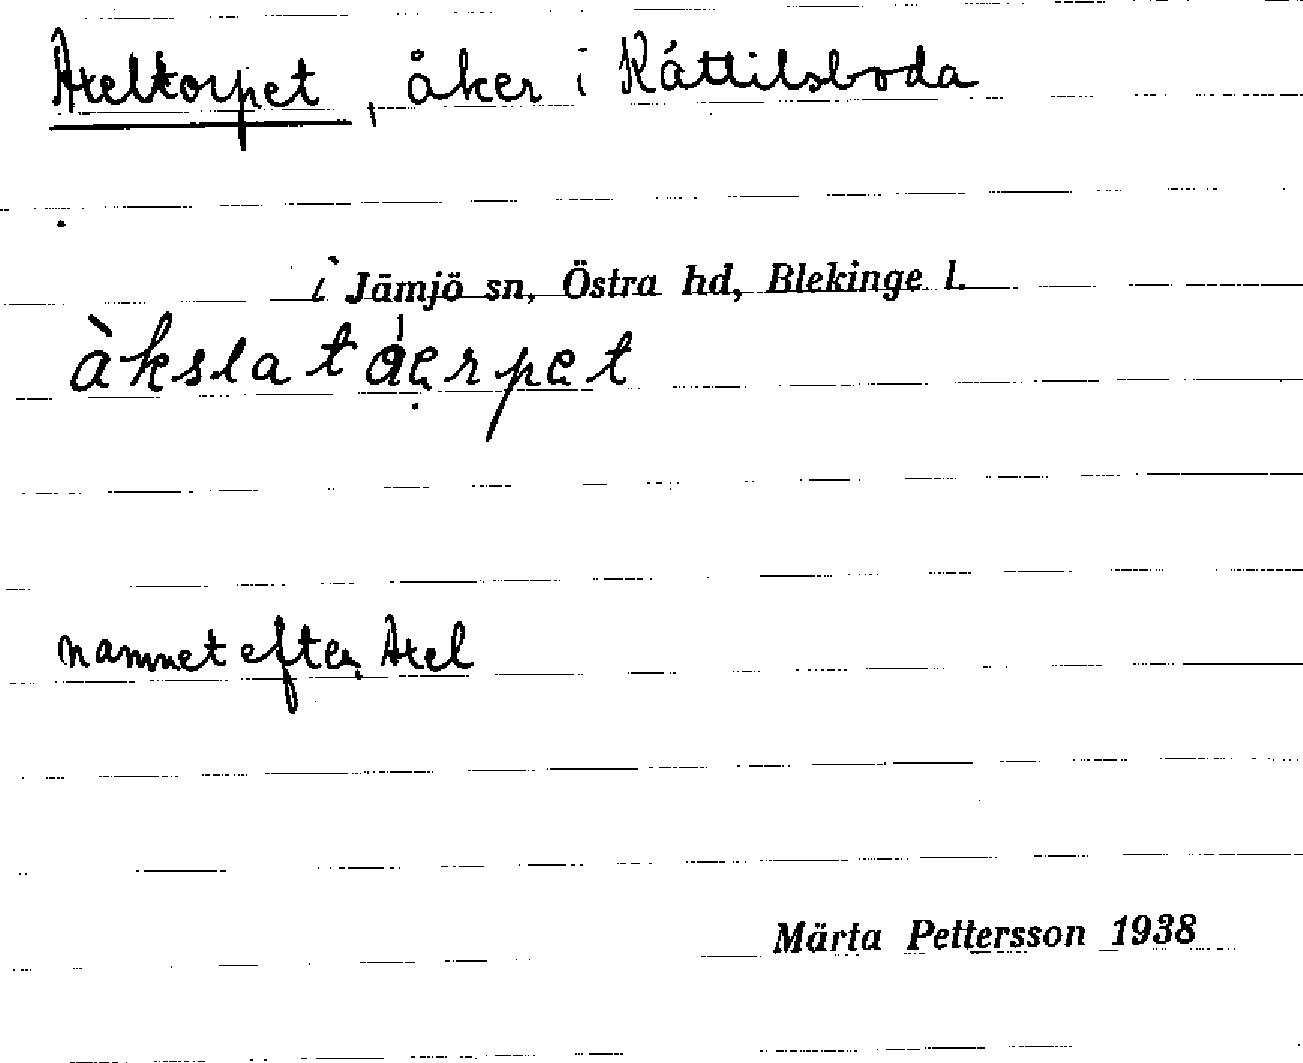 Axeltorpet, åker i Kåttilsboda
i Jämjö sn, Östra hd, Blekinge l.
àkslatáerpet
namnet efter Axel
Märta Pettersson 1938